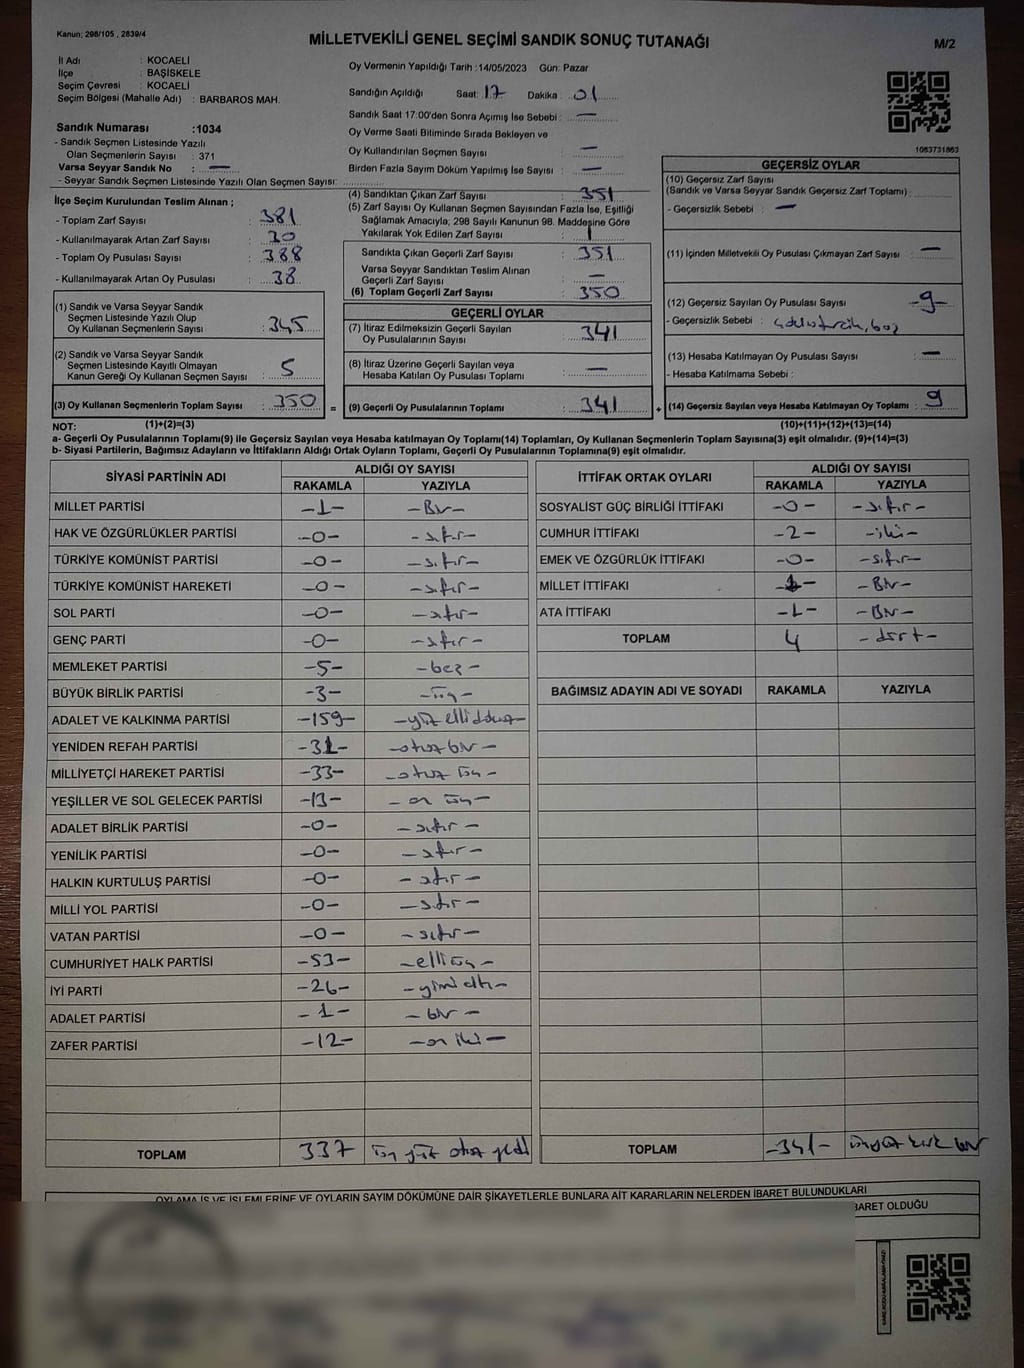 Kanun; 298/105 , 2839/4
MİLLETVEKİLİ GENEL SEÇİMİ SANDIK SONUÇ TUTANAĞI
M/2
İl Adı : KOCAELİ
İlçe : BAŞİSKELE
Seçim Çevresi : KOCAELİ
Seçim Bölgesi (Mahalle Adı) : BARBAROS MAH.
Sandık Numarası :1034
- Sandık Seçmen Listesinde Yazılı
Olan Seçmenlerin Sayısı : 371
Varsa Seyyar Sandık No : —
- Seyyar Sandık Seçmen Listesinde Yazılı Olan Seçmen Sayısı:
Oy Vermenin Yapıldığı Tarih :14/05/2023 Gün: Pazar
Sandığın Açıldığı Saat: 17 Dakika : 01
Sandık Saat 17:00'den Sonra Açımış İse Sebebi : —
Oy Verme Saati Bitiminde Sırada Bekleyen ve
Oy Kullandırılan Seçmen Sayısı : —
Birden Fazla Sayım Döküm Yapılmış İse Sayısı : —
1063731863
İlçe Seçim Kurulundan Teslim Alınan ;
- Toplam Zarf Sayısı : 381
- Kullanılmayarak Artan Zarf Sayısı : 30
- Toplam Oy Pusulası Sayısı : 388
- Kullanılmayarak Artan Oy Pusulası : 38
(1) Sandık ve Varsa Seyyar Sandık
Seçmen Listesinde Yazılı Olup
Oy Kullanan Seçmenlerin Sayısı : 345
(2) Sandık ve Varsa Seyyar Sandık
Seçmen Listesinde Kayıtlı Olmayan
Kanun Gereği Oy Kullanan Seçmen Sayısı : 5
(3) Oy Kullanan Seçmenlerin Toplam Sayısı : 350
(4) Sandıktan Çıkan Zarf Sayısı : 351
(5) Zarf Sayısı Oy Kullanan Seçmen Sayısından Fazla İse, Eşitliği
Sağlamak Amacıyla; 298 Sayılı Kanunun 98. Maddesine Göre
Yakılarak Yok Edilen Zarf Sayısı : 1
Sandıkta Çıkan Geçerli Zarf Sayısı : 351
Varsa Seyyar Sandıktan Teslim Alınan
Geçerli Zarf Sayısı : —
(6) Toplam Geçerli Zarf Sayısı : 350
GEÇERLİ OYLAR
(7) İtiraz Edilmeksizin Geçerli Sayılan
Oy Pusulalarının Sayısı : 341
(8) İtiraz Üzerine Geçerli Sayılan veya
Hesaba Katılan Oy Pusulası Toplamı : —
= (9) Geçerli Oy Pusulalarının Toplamı : 341 +
GEÇERSİZ OYLAR
(10) Geçersiz Zarf Sayısı
(Sandık ve Varsa Seyyar Sandık Geçersiz Zarf Toplamı) :
- Geçersizlik Sebebi : —
(11) İçinden Milletvekili Oy Pusulası Çıkmayan Zarf Sayısı : —
(12) Geçersiz Sayılan Oy Pusulası Sayısı : -9-
- Geçersizlik Sebebi :
(13) Hesaba Katılmayan Oy Pusulası Sayısı : —
- Hesaba Katılmama Sebebi :
(14) Geçersiz Sayılan veya Hesaba Katılmayan Oy Toplamı : 9
NOT: (1)+(2)=(3) (10)+(11)+(12)+(13)=(14)
a- Geçerli Oy Pusulalarının Toplamı(9) ile Geçersiz Sayılan veya Hesaba katılmayan Oy Toplamı(14) Toplamları, Oy Kullanan Seçmenlerin Toplam Sayısına(3) eşit olmalıdır. (9)+(14)=(3)
b- Siyasi Partilerin, Bağımsız Adayların ve İttifakların Aldığı Ortak Oyların Toplamı, Geçerli Oy Pusulalarının Toplamına(9) eşit olmalıdır.
SİYASİ PARTİNİN ADI ALDIĞI OY SAYISI
RAKAMLA YAZIYLA
MİLLET PARTİSİ -1- -Bir-
HAK VE ÖZGÜRLÜKLER PARTİSİ -0- -sıfır-
TÜRKİYE KOMÜNİST PARTİSİ -0- -sıfır-
TÜRKİYE KOMÜNİST HAREKETİ -0- -sıfır-
SOL PARTİ -0- -sıfır-
GENÇ PARTİ -0- -sıfır-
MEMLEKET PARTİSİ -5- -beş-
BÜYÜK BİRLİK PARTİSİ -3- -üç-
ADALET VE KALKINMA PARTİSİ -159- -yüz elli dokuz-
YENİDEN REFAH PARTİSİ -31- -otuz bir-
MİLLİYETÇİ HAREKET PARTİSİ -33- -otuz üç-
YEŞİLLER VE SOL GELECEK PARTİSİ -13- -on üç-
ADALET BİRLİK PARTİSİ -0- -sıfır-
YENİLİK PARTİSİ -0- -sıfır-
HALKIN KURTULUŞ PARTİSİ -0- -sıfır-
MİLLİ YOL PARTİSİ -0- -sıfır-
VATAN PARTİSİ -0- -sıfır-
CUMHURİYET HALK PARTİSİ -53- -elli üç-
İYİ PARTİ -26- -yirmi altı-
ADALET PARTİSİ -1- -bir-
ZAFER PARTİSİ -12- -on iki-
TOPLAM 337 üç yüz otuz yedi
İTTİFAK ORTAK OYLARI ALDIĞI OY SAYISI
RAKAMLA YAZIYLA
SOSYALİST GÜÇ BİRLİĞİ İTTİFAKI -0- -sıfır-
CUMHUR İTTİFAKI -2- -iki-
EMEK VE ÖZGÜRLÜK İTTİFAKI -0- -sıfır-
MİLLET İTTİFAKI -1- -Bir-
ATA İTTİFAKI -1- -Bir-
TOPLAM 4 -dört-
BAĞIMSIZ ADAYIN ADI VE SOYADI RAKAMLA YAZIYLA
TOPLAM -341- üçyüz kırk bir
OYLAMA İŞ VE İŞLEMLERİNE VE OYLARIN SAYIM DÖKÜMÜNE DAİR ŞİKAYETLERLE BUNLARA AİT KARARLARIN NELERDEN İBARET BULUNDUKLARI
BARET OLDUĞU